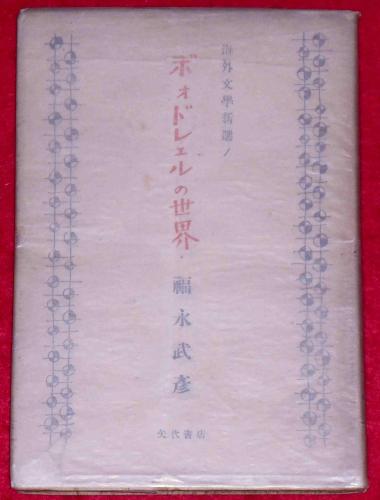 海外文學新選1
ボオドレエルの世界
福永武彦
矢代書店